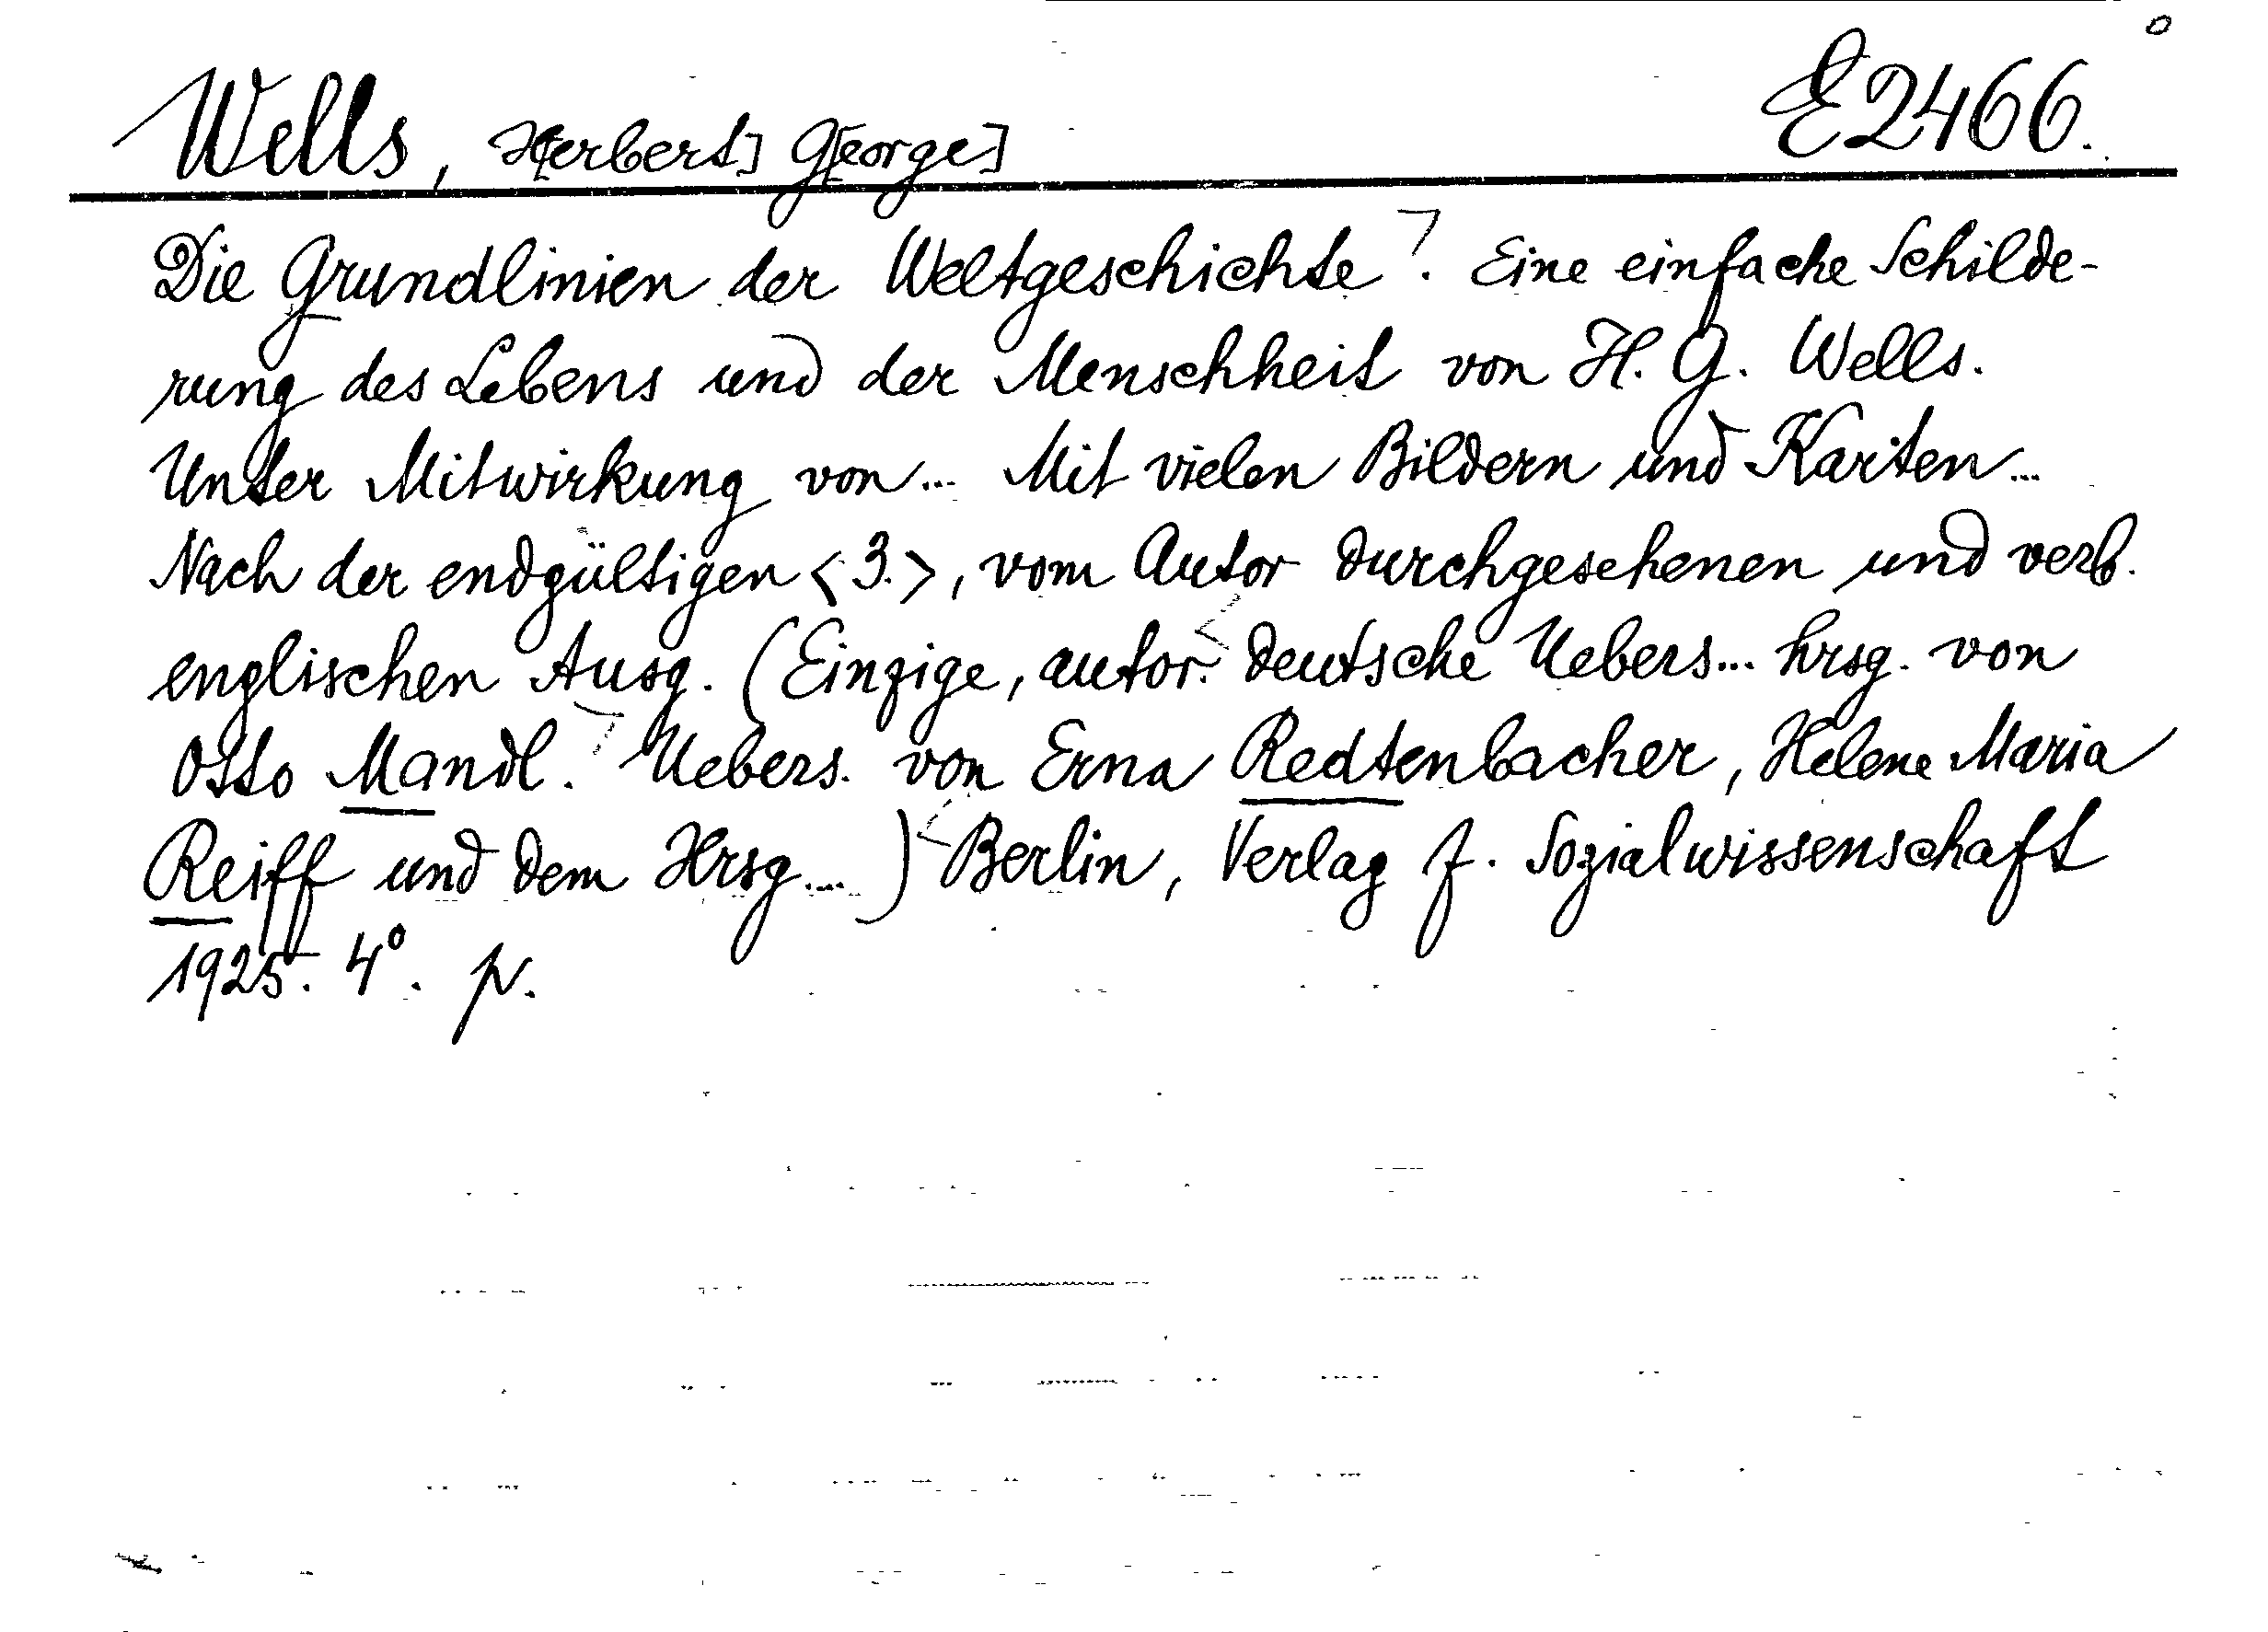 Wells, H[erbert] G[eorge] E2466.
Die Grundlinien der Weltgeschichte. Eine einfache Schilde-
rung des Lebens und der Menschheit von H. G. Wells.
Unter Mitwirkung von... Mit vielen Bildern und Karten...
Nach der endgültigen <3.>, vom Autor durchgesehenen und verb.
englischen Ausg. (Einzige, autor. deutsche Uebers... hrsg. von
Otto Mandl. Uebers. von Erna Redtenbacher, Helene Maria
Reiff und dem Hrsg....) Berlin, Verlag f. Sozialwissenschaft
1925. 4°. p.